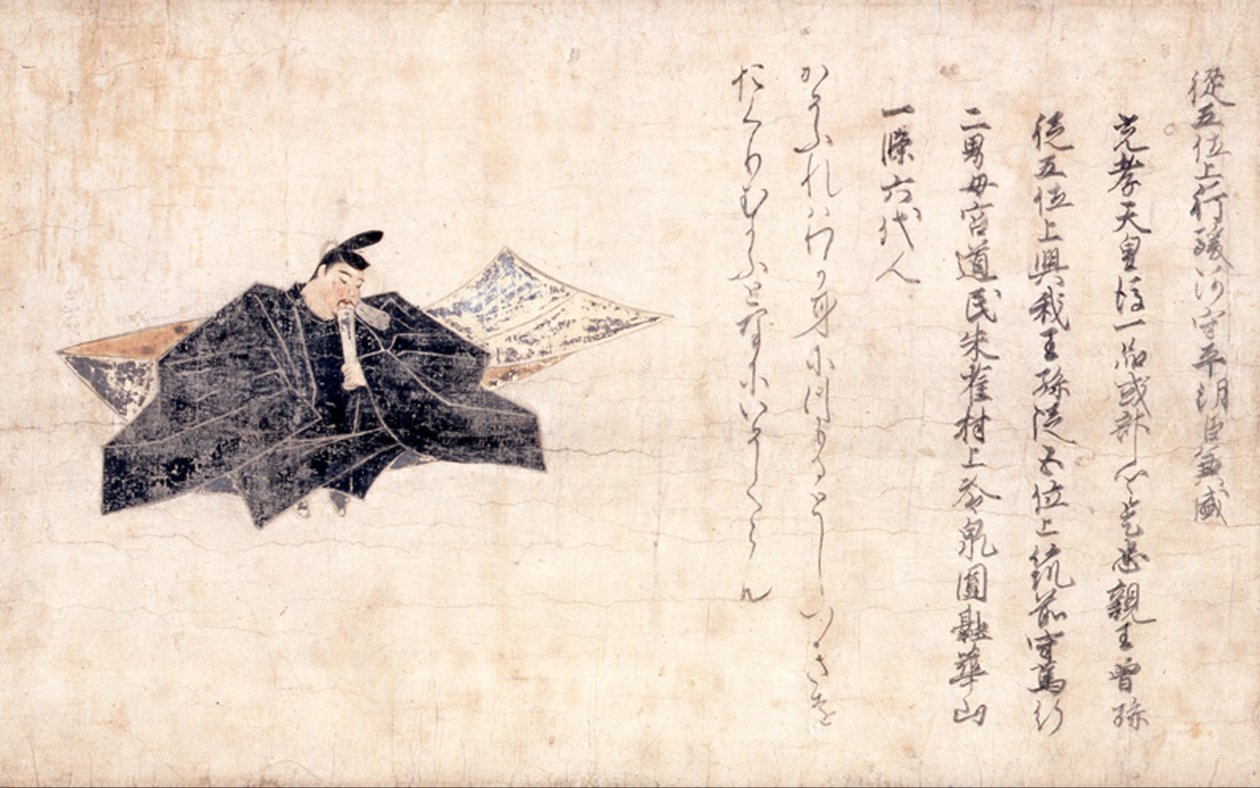 從五位上行駿河守平朝臣兼盛
光孝天皇後一品式部卿是忠親王曾孫
從五位上興我王孫從五位上筑前守篤行
二男母宮道氏朱雀村上冷泉圓融華山
一條六代人
かそふれハわか身につもるとしつきを
おくりむかふとなにいそくらん